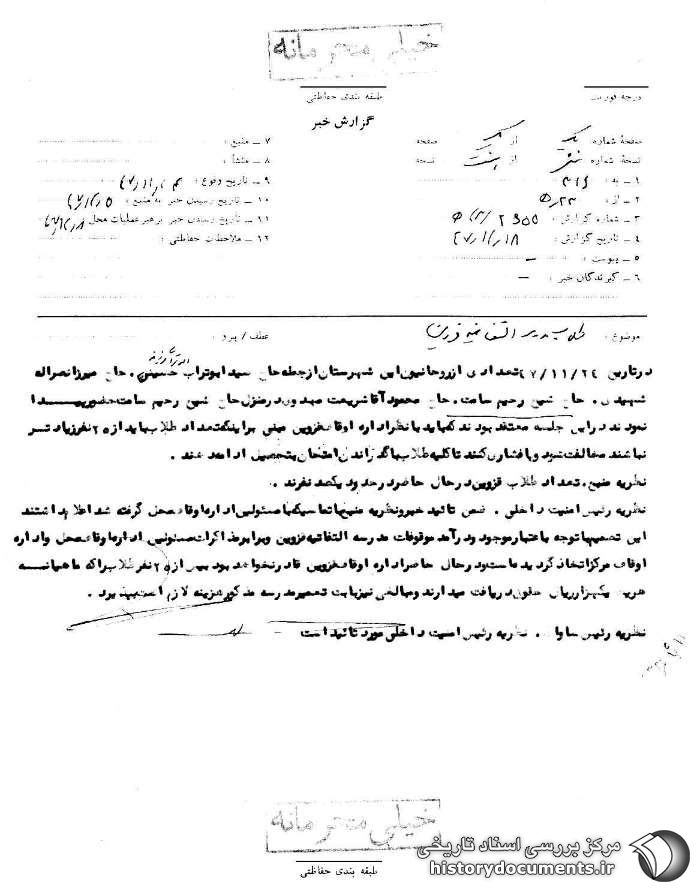 خیلی محرمانه
درجه فوریت
طبقه بندی حفاظتی
گزارش خبر
صفحهٔ شماره یک از یک صفحه
نسخهٔ شماره از نسخه
۱ ـ به : ۳۱۶
۲ ـ از :
۳ ـ شماره گزارش :
۴ ـ تاریخ گزارش :
۵ ـ پیوست : ـ
۶ ـ گیرندگان خبر : ـ
۷ ـ منبع :
۸ ـ منشأ :
۹ ـ تاریخ وقوع :
۱۰ ـ تاریخ رسیدن خبر به منبع :
۱۱ ـ تاریخ رسیدن خبر برهبر عملیات محل
۱۲ ـ ملاحظات حفاظتی :
موضوع : طلاب مدرسه التفاتیه قزوین
عطف / پیرو :
درتاریخ ۴۷/۱۱/۲۴ تعدادی ازروحانیون این شهرستان ازجمله حاج سید ابوتراب حسینی ، حاج میرزا نصراله
شهیدی ، حاج شیخ رحیم سامت ، حاج محمود آقا شریعت مهدوی درمنزل حاج شیخ رحیم سامت حضورپیدا
نمودند دراین جلسه معتقد بودند که باید با نظراداره اوقاف قزوین مبنی براینکه تعداد طلاب باید از ۲۵ نفرزیاد تر
نباشند مخالفت شود و پافشاری کنند تا کلیه طلاب با گذراندن امتحان بتحصیل ادامه دهند .
نظریه منبع . تعداد طلاب قزوین درحال حاضر درحدود یکصد نفرند .
نظریه رئیس امنیت داخلی . ضمن تائید خبرونظریه منبع با تماسیکه با مسئولین اداره اوقاف محل گرفته شد اعلام داشتند
این تصمیم با توجه باعتبارموجود ودرآمد موقوفات مدرسه التفاتیه قزوین وبرابرمذاکرات مسئولین اداره اوقاف محل واداره
اوقاف مرکز اتخاذ گردیده است ودرحال حاضراداره اوقاف قزوین قادرنخواهد بود بیش از ۲۵ نفرطلاب راکه ماهیانه
هریک یکهزارریال حقوق دریافت میدارند ومبالغی نیزبابت تعمیرمدرسه مذکورهزینه لازم است بپذیرد .
نظریه رئیس ساواک . نظریه رئیس امنیت داخلی مورد تائید است
خیلی محرمانه
طبقه بندی حفاظتی
مرکز بررسی اسناد تاریخی
historydocuments.ir